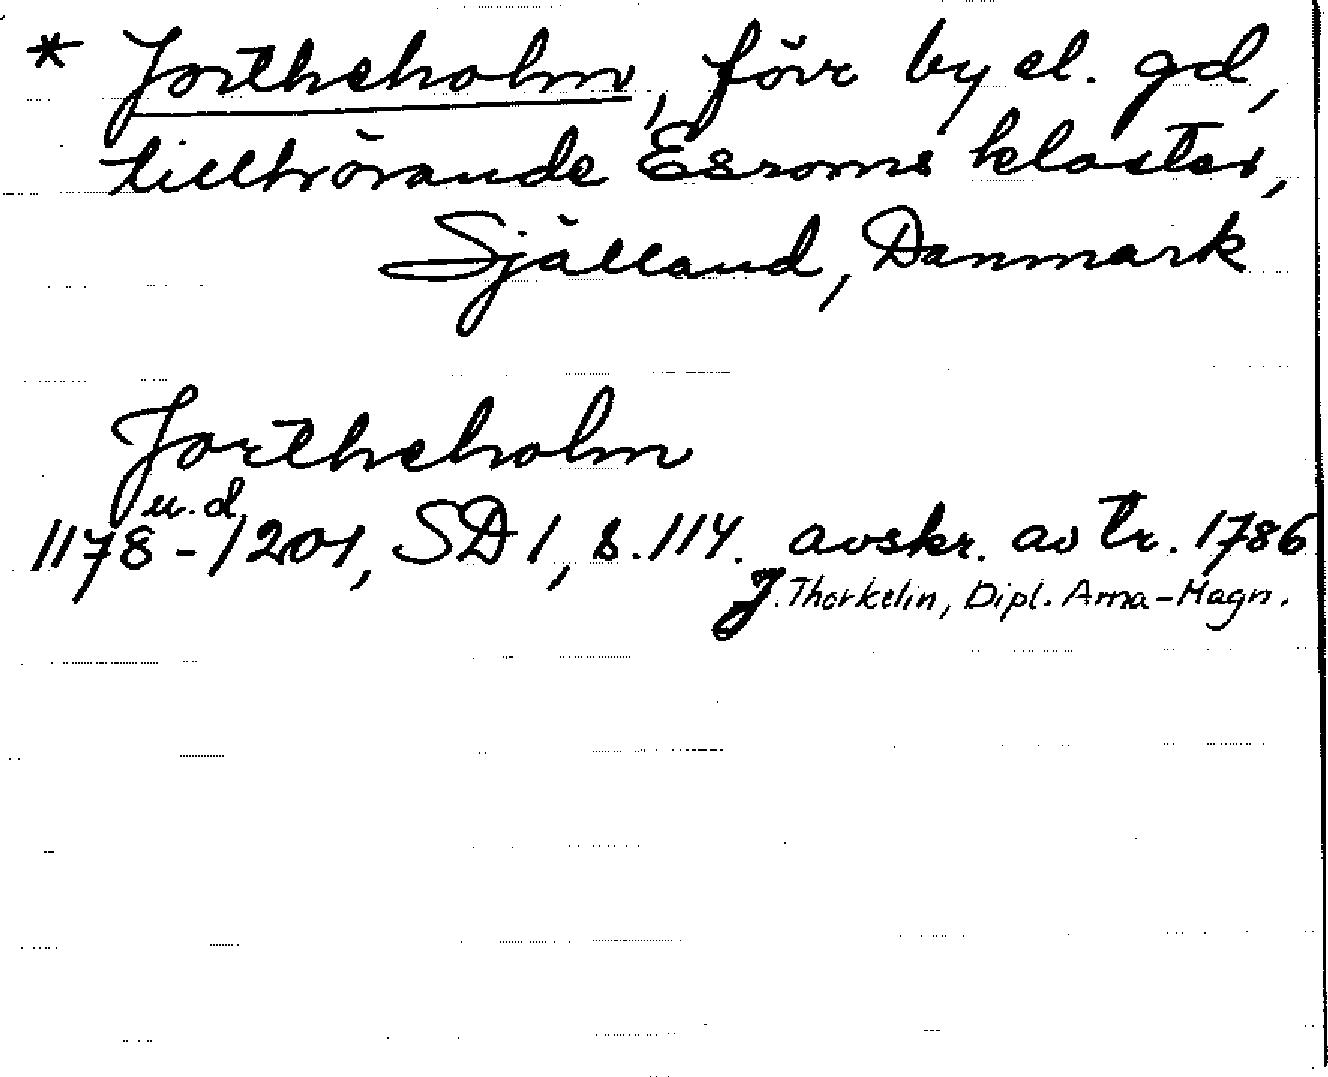 * Jortheholm, förr by el. gd,
tillhörande Esroms kloster,
Själland, Danmark
Jortheholm
u.d
1178-1201, SD 1, s. 114. avskr. av tr. 1786
J. Thorkelin, Dipl. Arna-Magn.